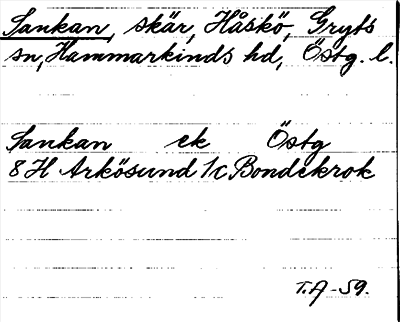 Sankan, skär, Håskö, Gryts
sn, Hammarkinds hd, Östg. l.
Sankan ek Östg
8H Arkösund 1c Bondekrok
T.A -59.